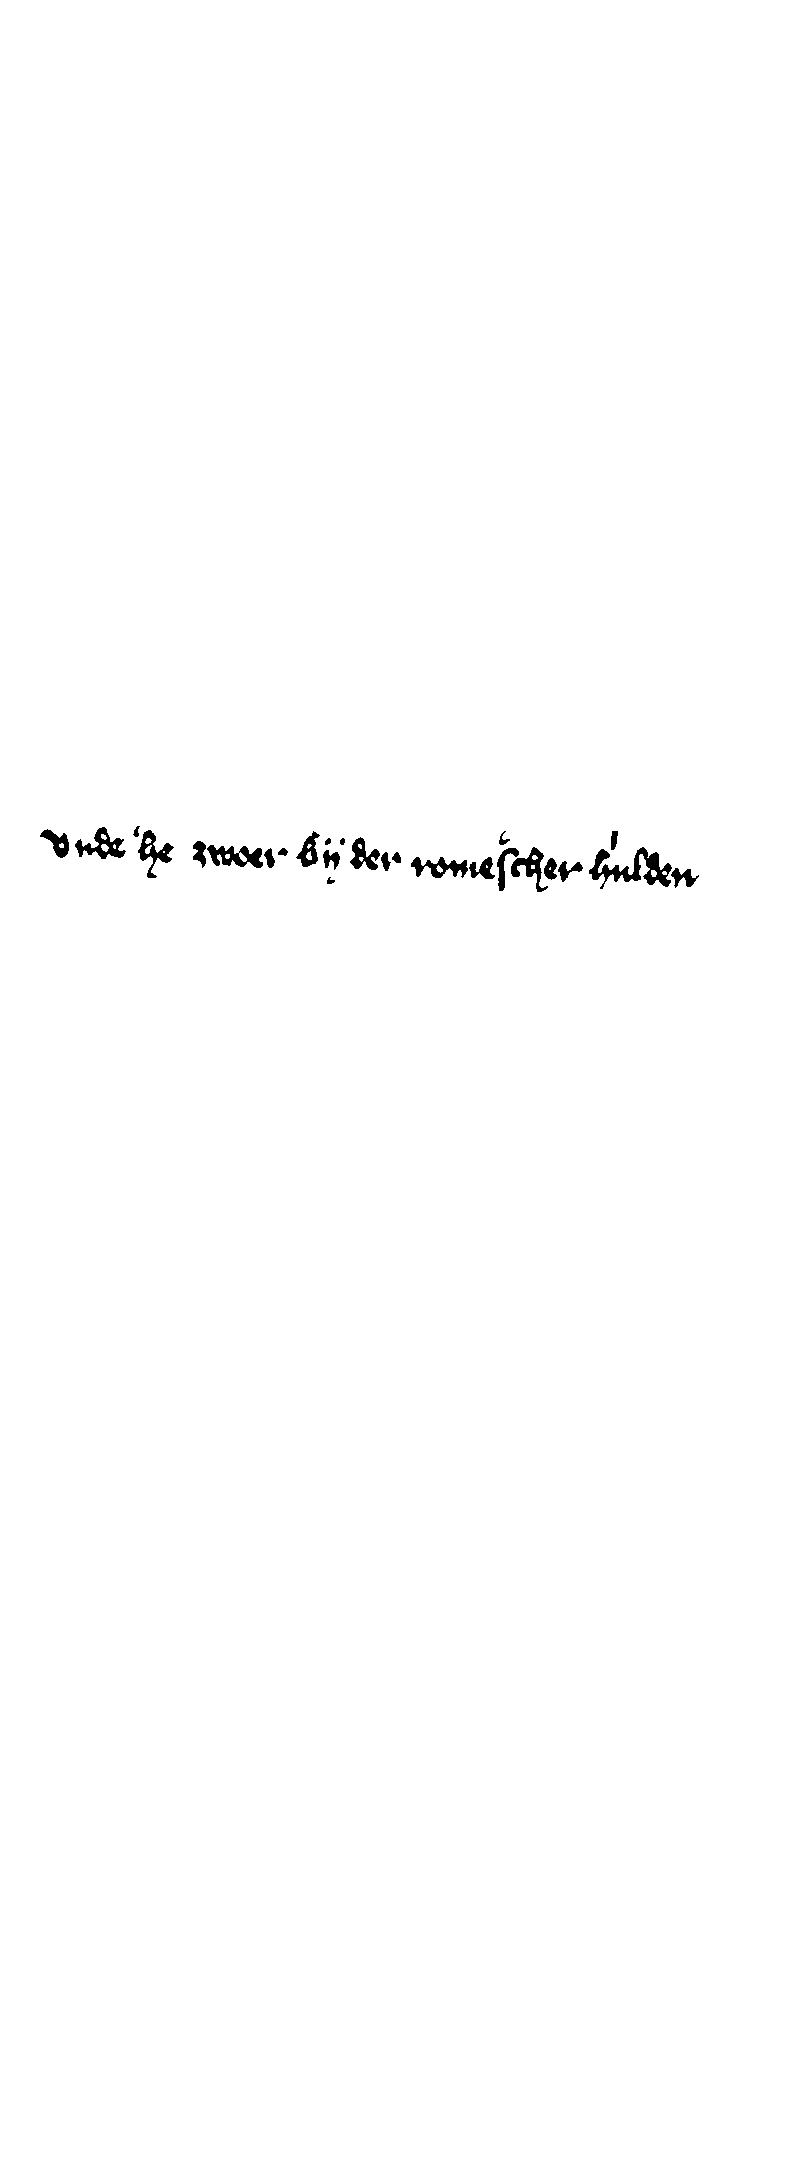 vnde he zwoer bij der romescher hulden